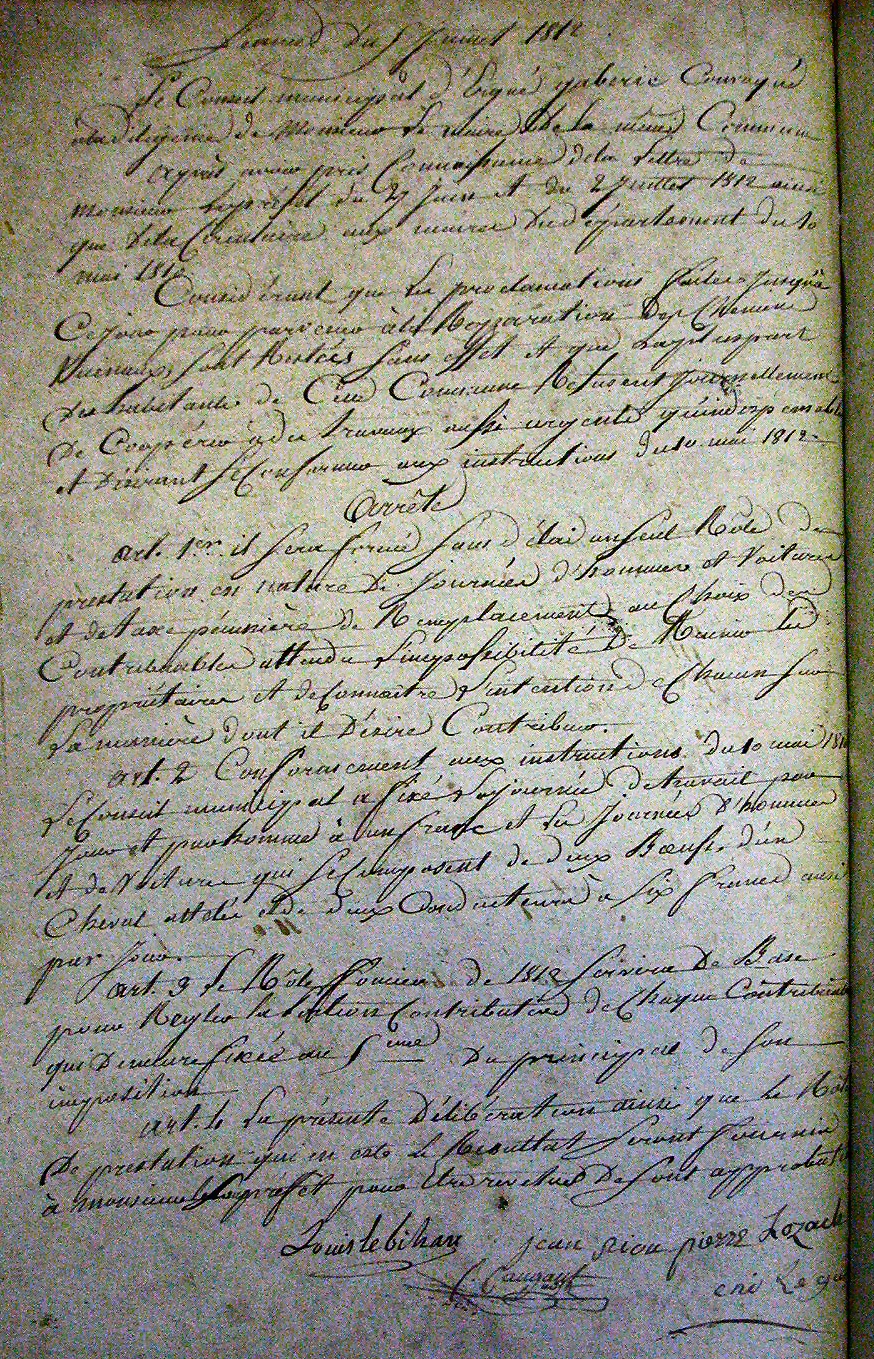 Séance du 5 Juillet 1812
Le Conseil municipal d'Ergué gaberic Convoqué
à la diligence de Monsieur Le maire de la même Commune
après avoir pris Connaissance de la Lettre de
Monsieur Le préfet du 27 Juin et du 2 Juillet 1812 ainsi
que de la Circulaire aux maires du département du 10
mai 1812
Considérant que les proclamations faites Jusqu'à
Ce jour pour parvenir à la Répparation des Chemins
Vicinaux, sont Restées sans effet et que la plus part
des habitants de Cette Commune Refusent Journellement
de Coopérer à des travaux aussi urgents qu'indispensables
et Désirant se Conformer aux instructions du 10 mai 1812
Arrête
art. 1er. il sera formé sans délai un seul Rôle de
prestation en nature de Journées d'hommes et Voitures
et de taxe péunière de Remplacement, au Choix des
Contribuables attendu l'impossibilité de Réunir les
propriétaires et de Connaître l'intention de Chacun sur
la manière dont il Désire Contribuer.
art. 2 Conformément aux instructions du 10 mai 1812
Le Conseil municipal a fixé la journée de travail par
Jour et par homme à un franc et la Journée d'hommes
et de Voiture qui se Composent de deux Bœufs d'un
Cheval attelés et de deux Conducteurs à six francs aussi
par Jour.
art. 3 Le Rôle foncier de 1812 servira de Base
pour Régler la portion Contributive de Chaque Contribuable
qui Demeure fixée au 5ème du principal de son
imposition
art. 4 La présente Délibération ainsi que le Rôle
de prestation qui en est le Résultat seront fournis
à monsieur Le préfet pour être revêtus de sont approbation
Louis le bihan jean riou pierre Lozach
eni Le